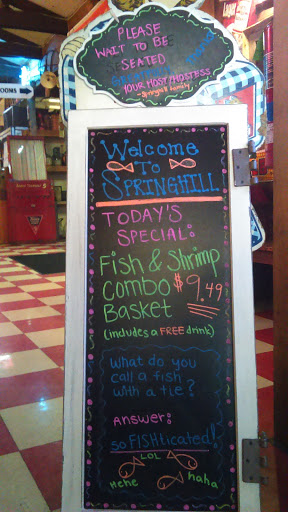 PLEASE
WAIT TO BE
SEATED
YOUR HOST/HOSTESS
- Springhill Family
Welcome
To
SPRINGHILL
TODAY'S
SPECIAL:
Fish & Shrimp
Combo $9.49
Basket
(includes a FREE drink)
What do you
call a fish
with a tie?
Answer:
soFISHticated!
LOL
Hehe haha